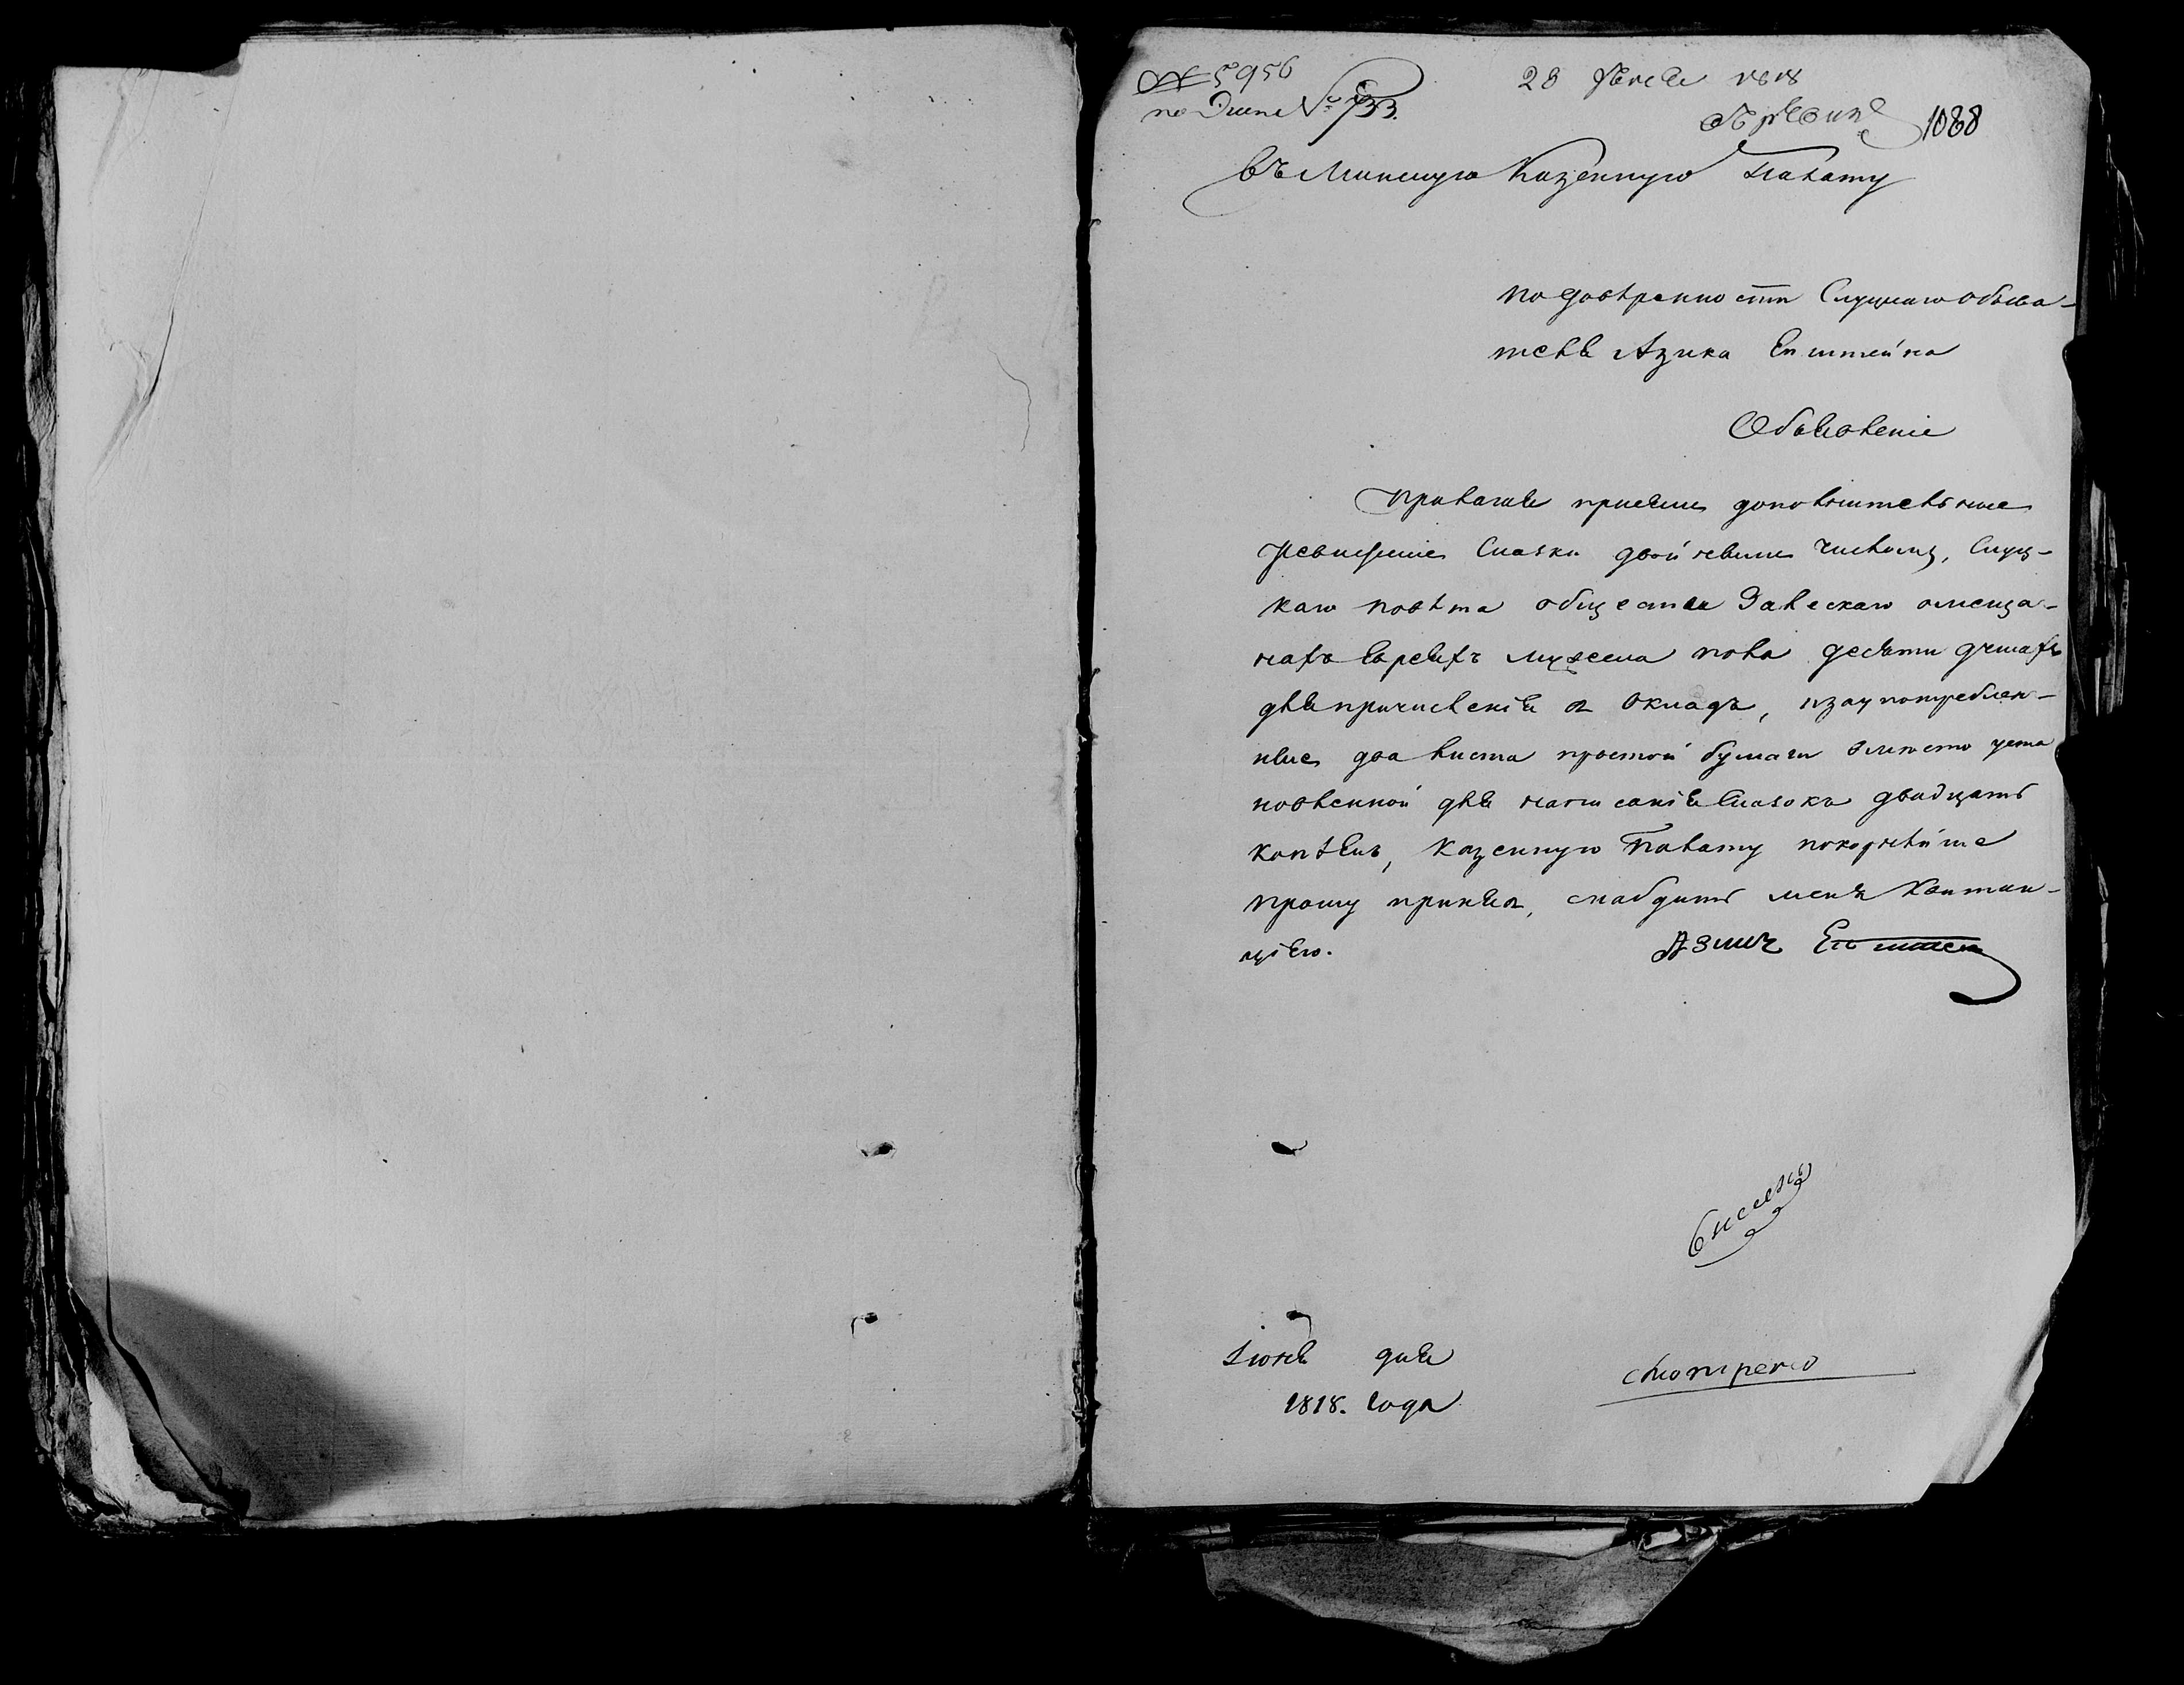 № 5956
28 Июня 1818
№ 733.
1088
Въ Минскую Казенную Палату
По доверенности Слуцкаго обыва-
теля Азика Епштейна
Объявленіе
Прилагая присемъ дополнительные
Ревизские Сказки двойнымъ числомъ, Слуц-
каго повѣта общества Залескаго о меща-
нахъ Евреяхъ мужеска пола десяти душахъ
для причисленія в Окладъ, и за употреблен-
ные два листа простой бумаги вместо уста
новленной для написанія Сказокъ двадцать
копѣекъ, Казенную Палату покорнѣйше
прошу принявъ, снабдить меня Квитан-
ціею.
Азикъ Епштеин
Іюня дня
1818. Года
смотрено